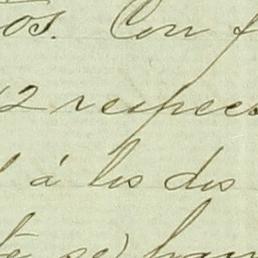 os. Con f
12 respec
á los dos
te se) han